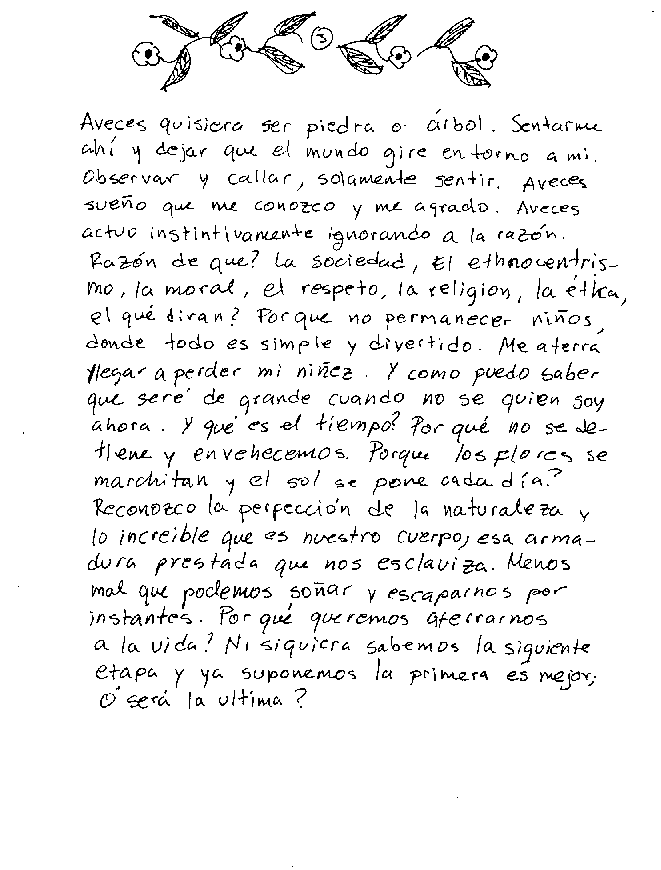 3
Aveces quisiera ser piedra o árbol. Sentarme
ahí y dejar que el mundo gire en torno a mi.
Observar y callar, solamente sentir. Aveces
sueño que me conozco y me agrado. Aveces
actuo instintivamente ignorando a la razón.
Razón de que? La sociedad, El ethnocentris-
mo, la moral, el respeto, la religion, la ética,
el qué diran? Porque no permanecer niños,
donde todo es simple y divertido. Me aterra
llegar a perder mi niñez. Y como puedo saber
que seré de grande cuando no se quien soy
ahora. Y qué es el tiempo? Por qué no se de-
tiene y envehecemos. Porque los flores se
marchitan y el sol se pone cada día?
Reconozco la perfección de la naturaleza y
lo increible que es nuestro cuerpo, esa arma-
dura prestada que nos esclaviza. Menos
mal que podemos soñar y escaparnos por
instantes. Por qué queremos aferrarnos
a la vida? Ni siquiera sabemos la siguiente
etapa y ya suponemos la primera es mejor,
O será la ultima?